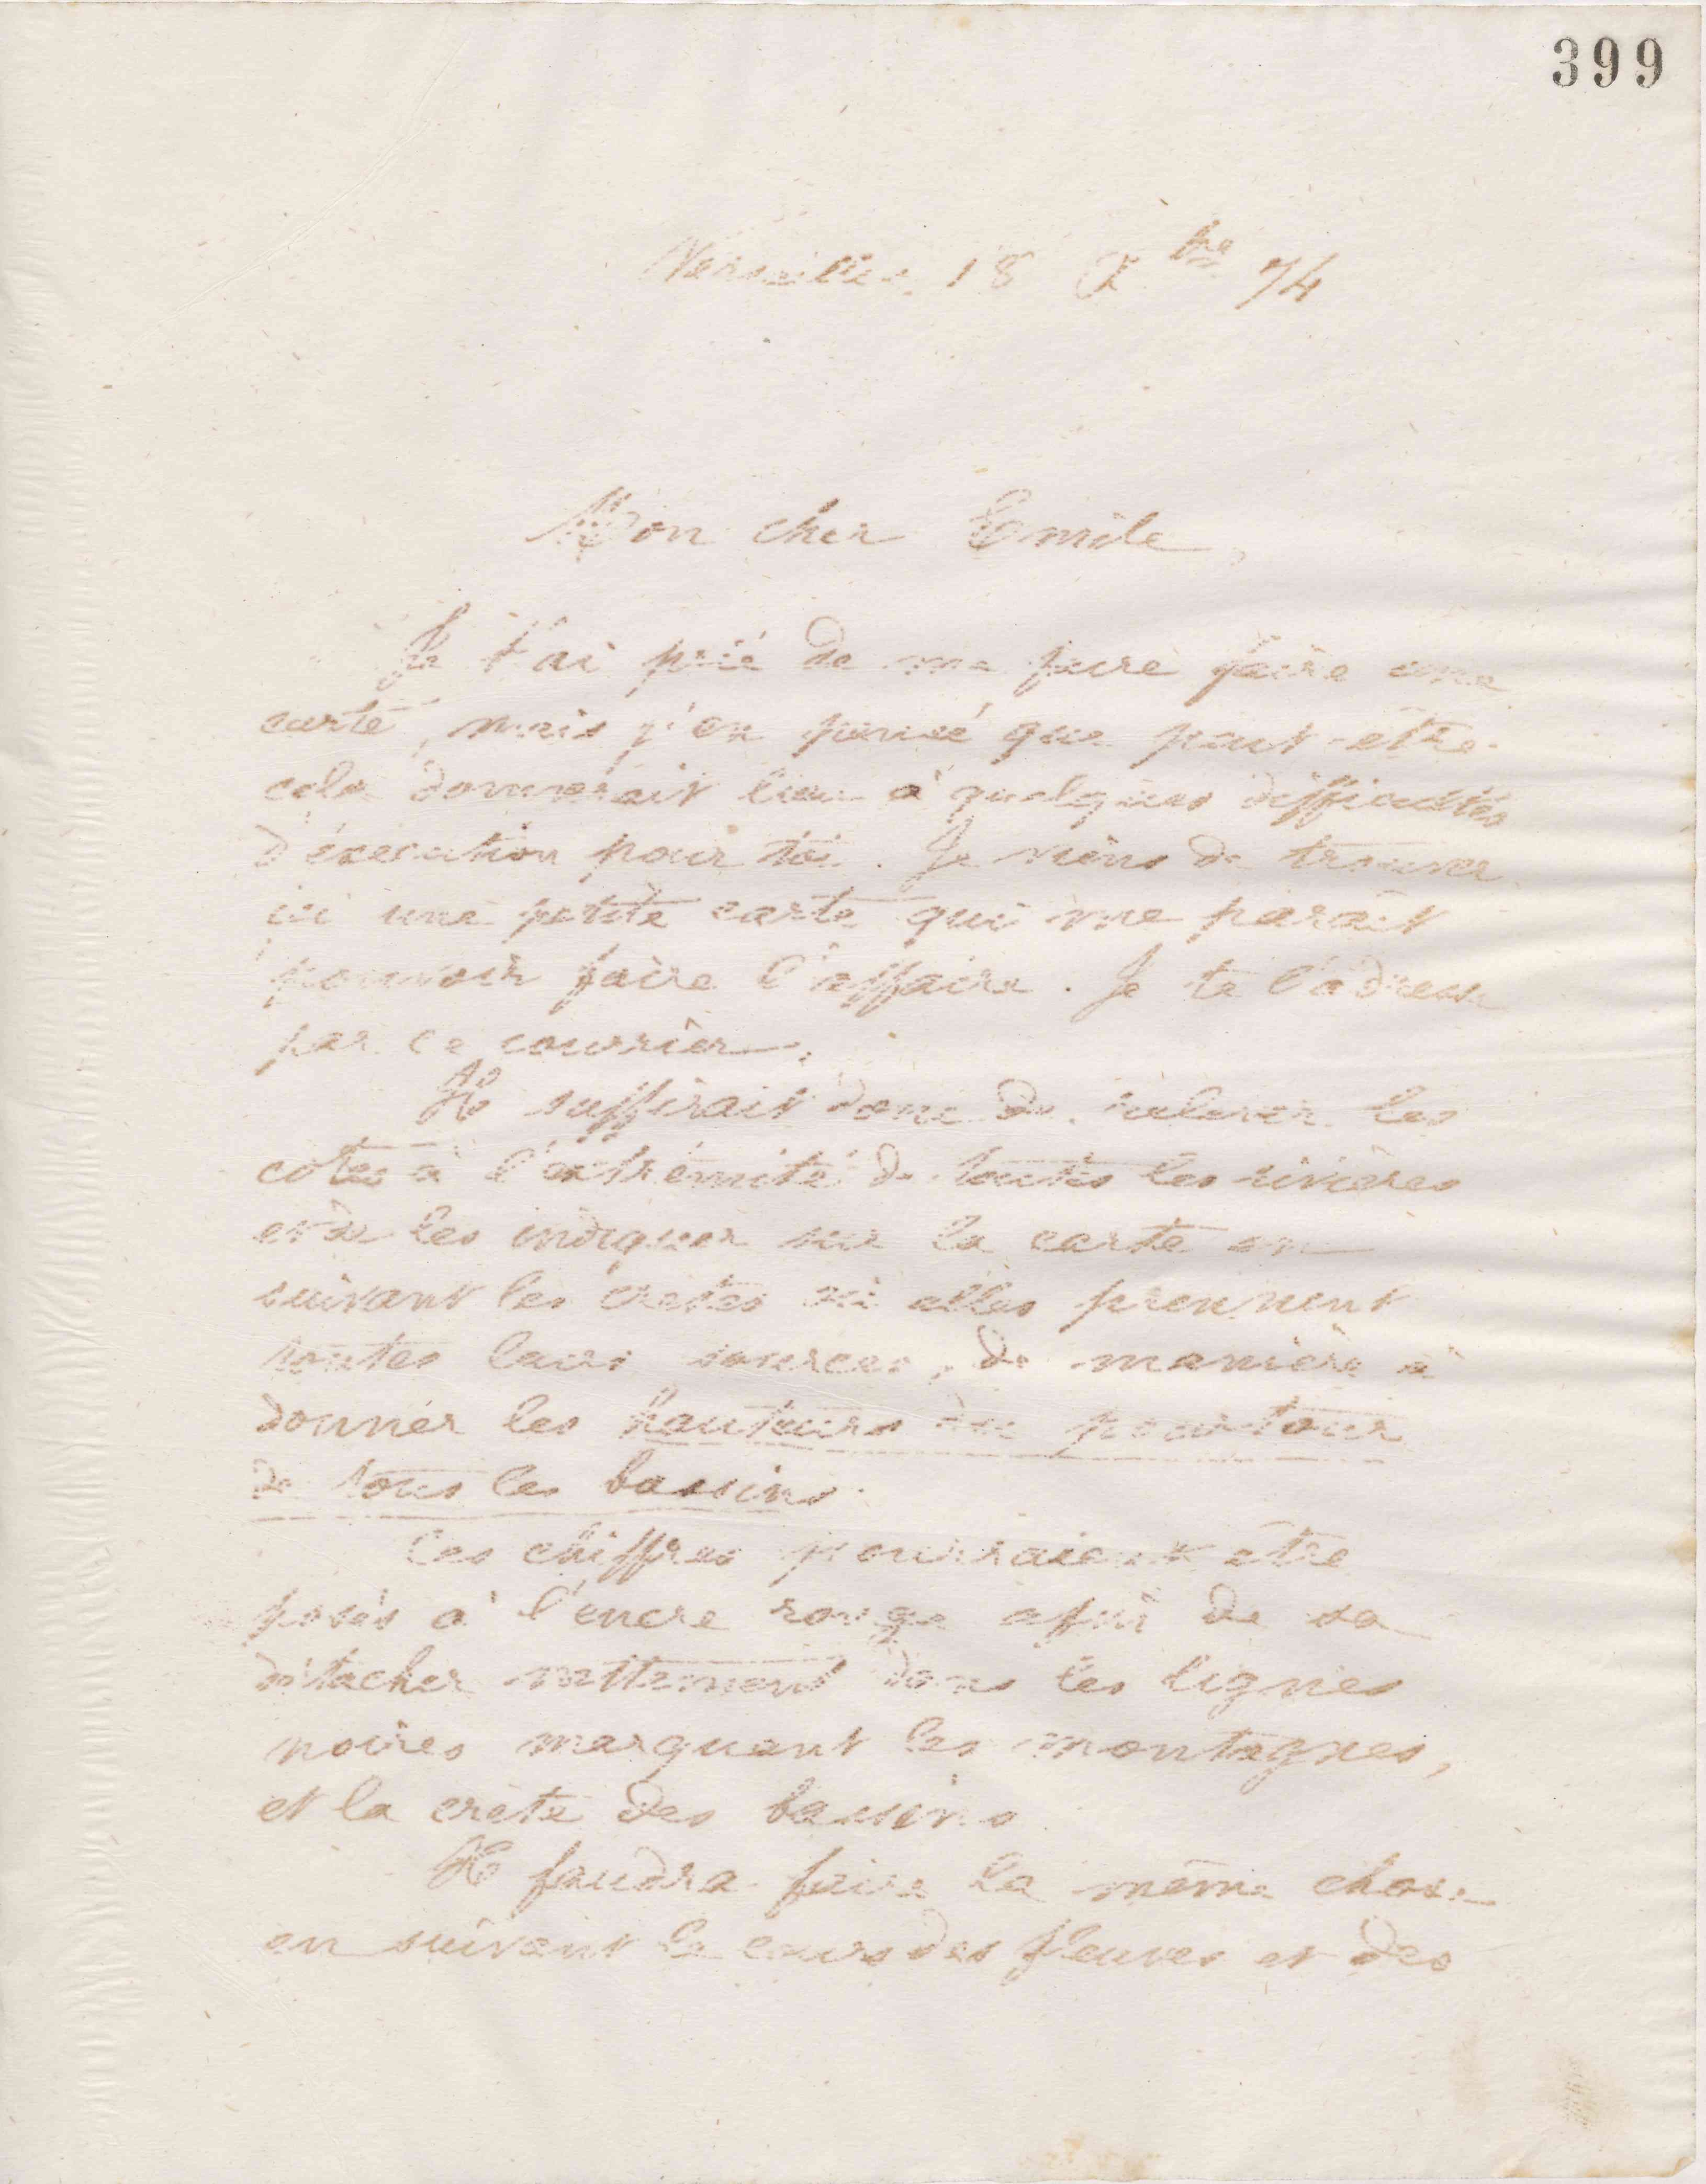 399
Versailles, 18 X bre 74
Mon cher Emile,
Je t'ai prié de me faire faire une
carte, mais j'ai pensé que peut-être
cela donnerait lieu à quelques difficultés
d'éxecution pour toi. Je viens de trouver
ici une petite carte qui me parait
pouvoir faire l'affaire. Je te l'adresse
par ce courrier.
Il suffirait donc de relever les
cotes à l'extrémité de toutes les rivières
et de les indiquer sur la carte en
suivant les cretes où elles prennent
toutes leurs sources, de manière à
donner les hauteurs du pourtour
de tous les bassins.
Ces chiffres pourraient être
posés à l'encre rouge afin de se
détacher nettement dans les lignes
noires marquant les montagnes,
et la crète des bassins.
Il faudra faire la même chose
en suivant le cours des fleuves et des